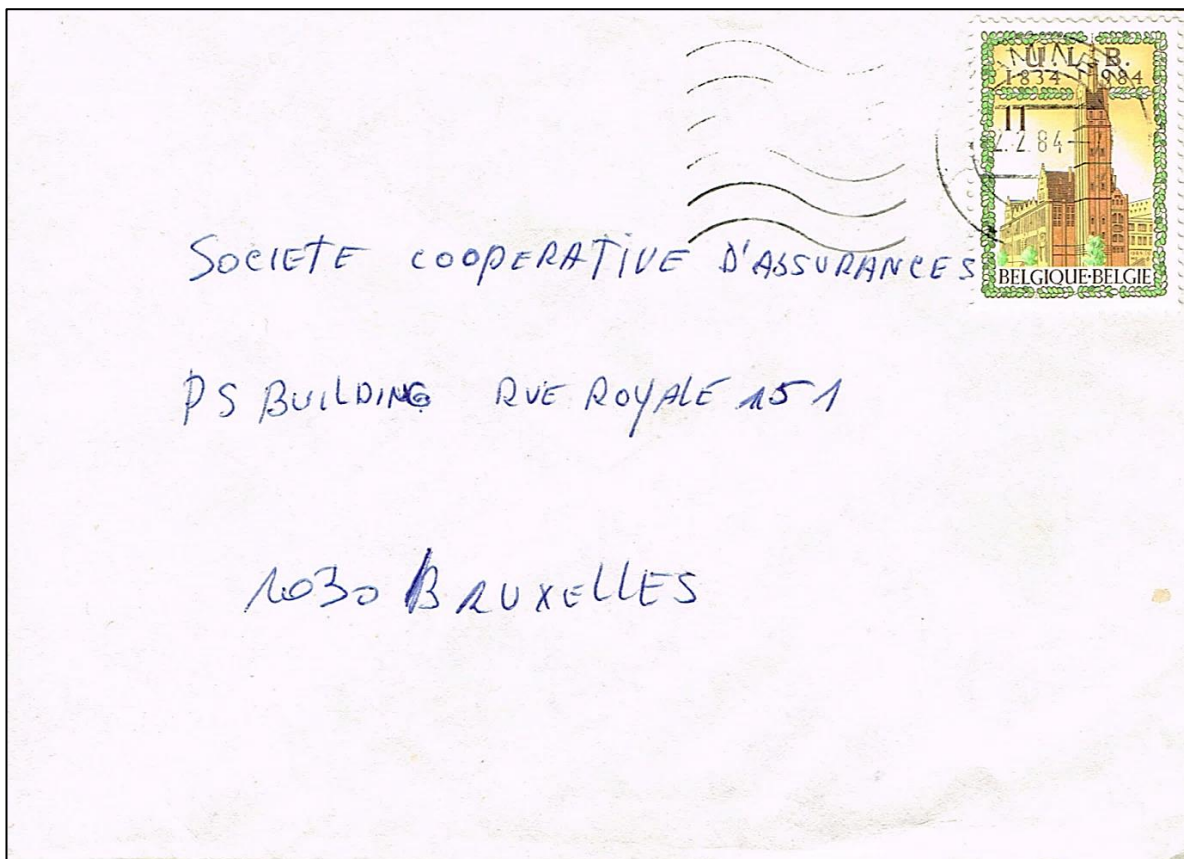 U.L.B.
1834 1984
11
2.2.84
BELGIQUE·BELGIE
SOCIETE COOPERATIVE D'ASSURANCES
PS BUILDING RUE ROYALE 151
1030 BRUXELLES